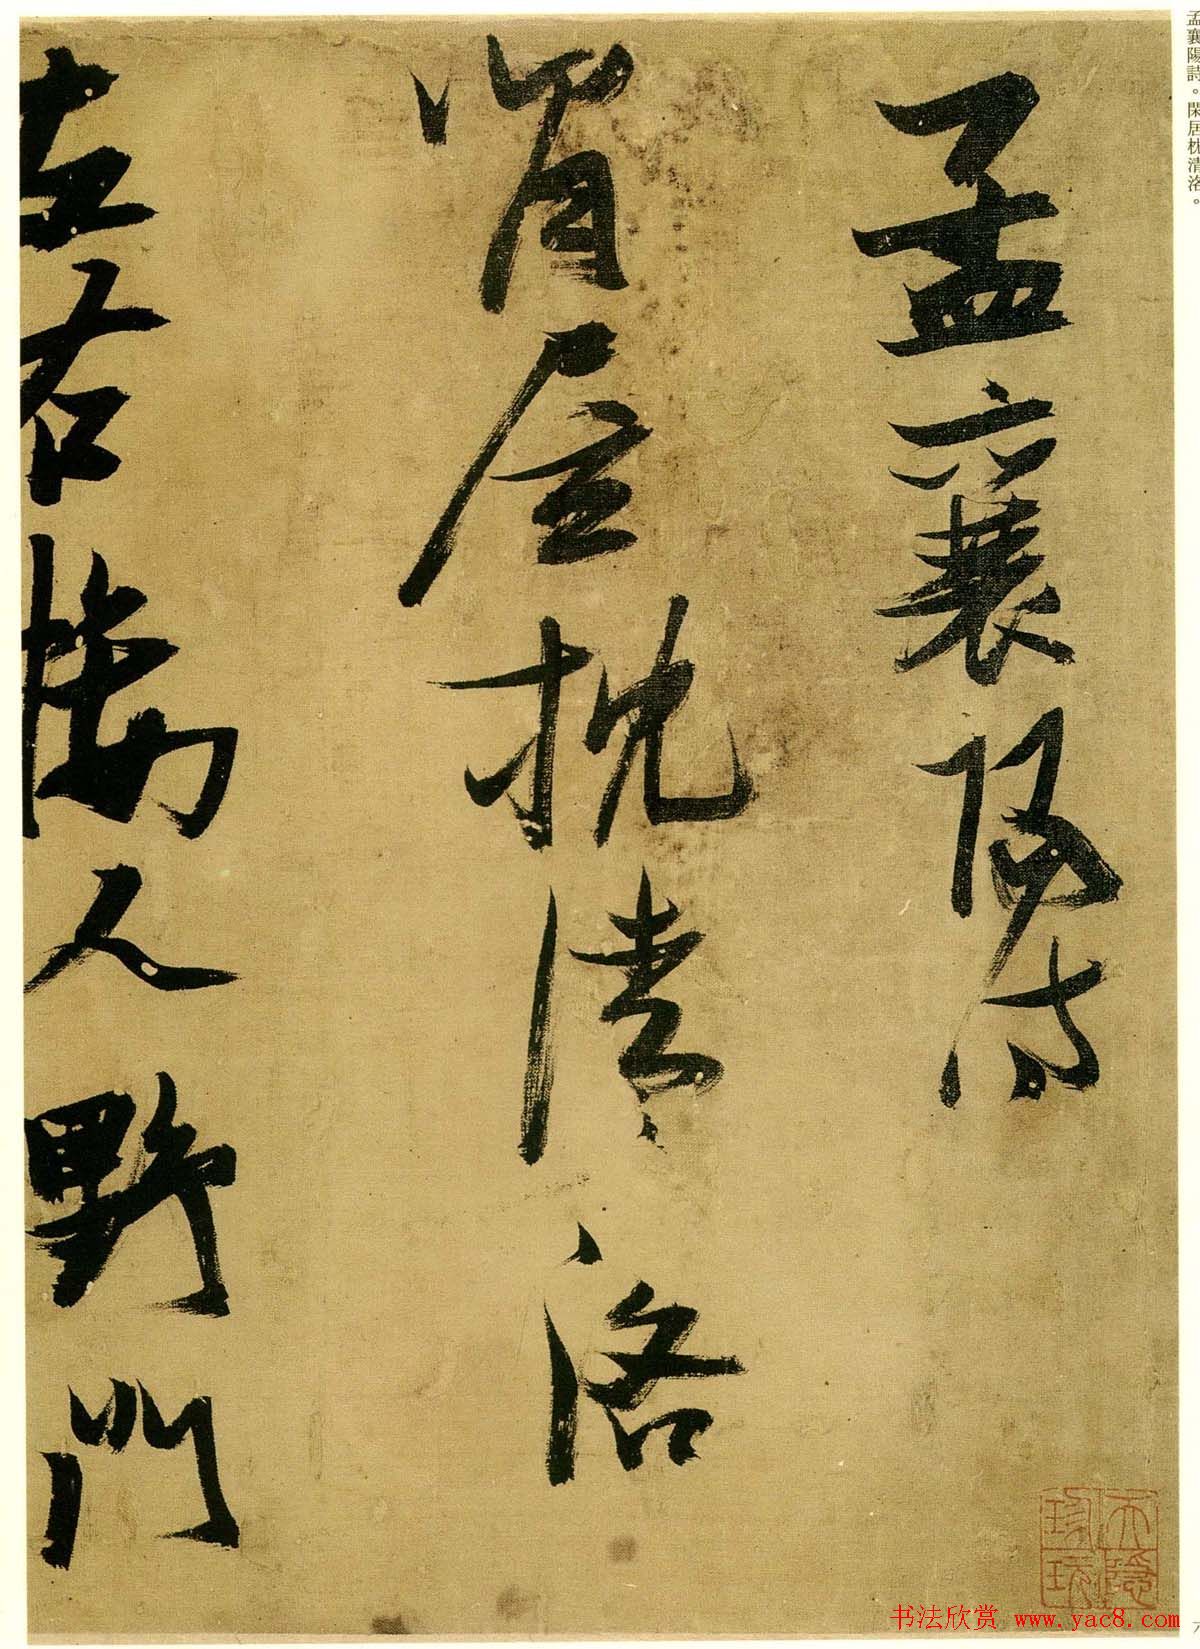 孟襄陽詩。閑居枕清洛。
孟襄陽詩
閑居枕清洛
左右接人野門
天隱
珍玩
书法欣赏 www.yac8.com